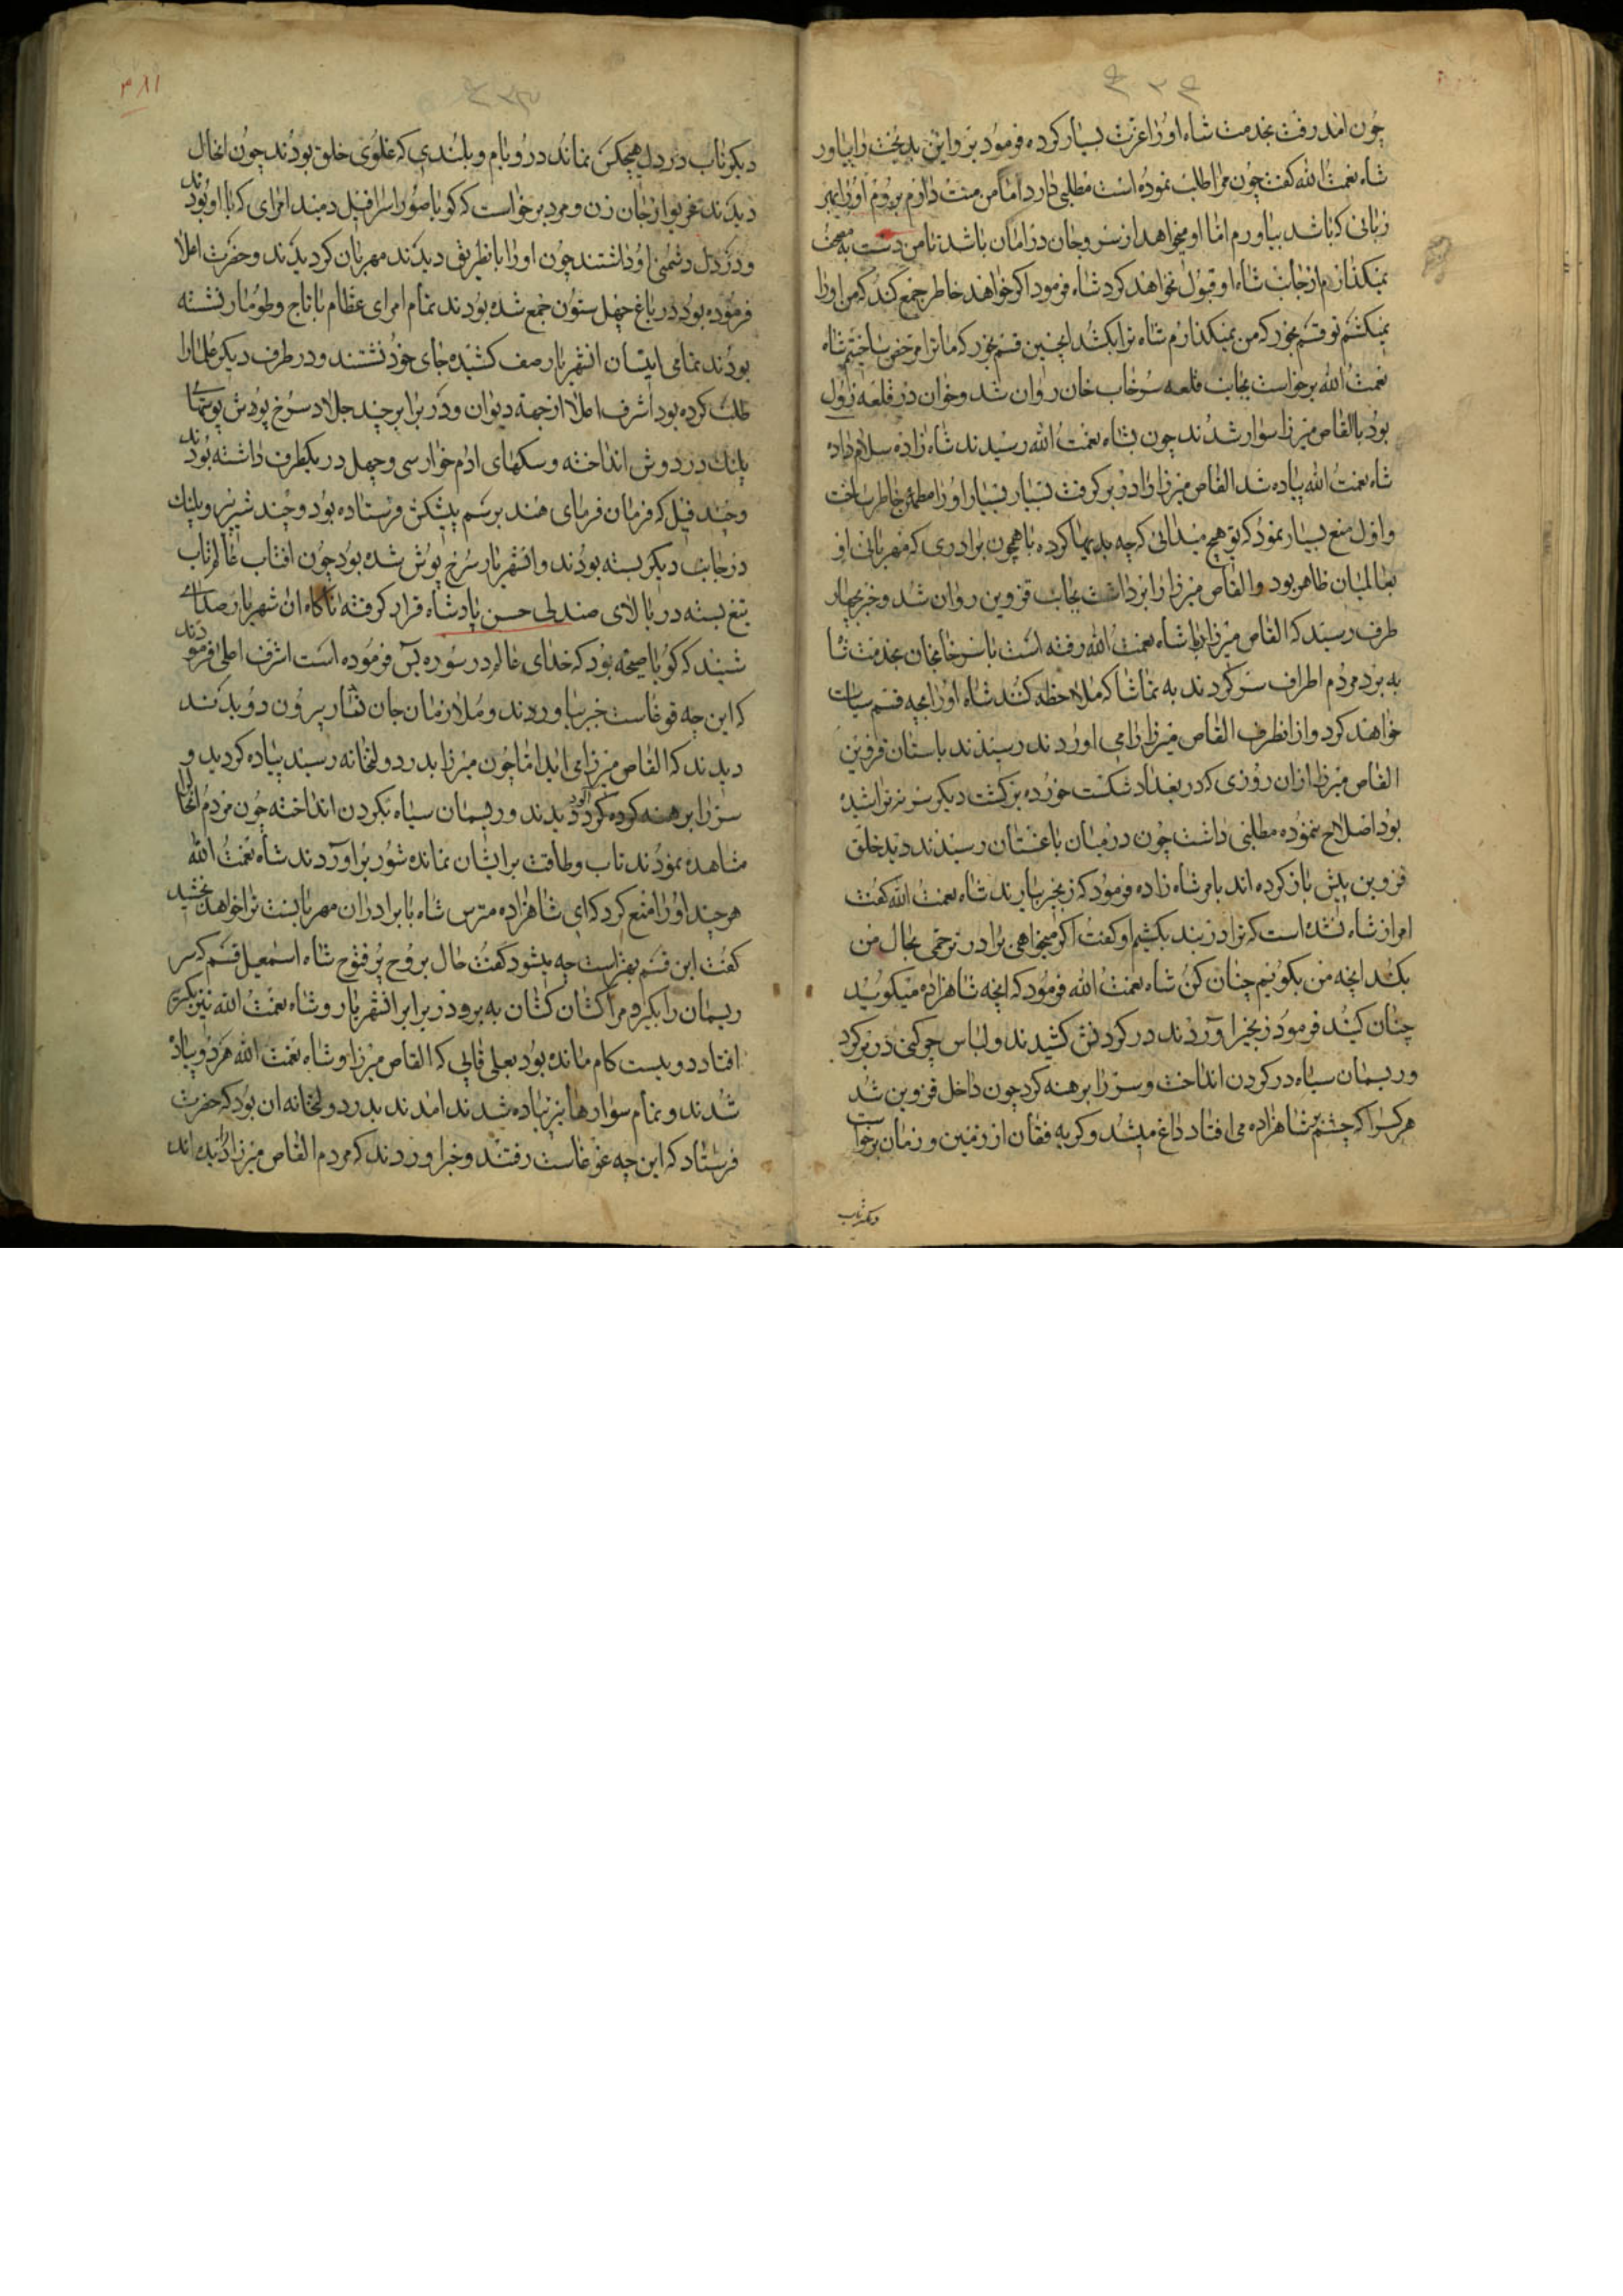 چون امد رفت بخدمت شاه اورا عزت بسیار کرده فرمود برو این بدبخت را بیاور
شاه نعمت الله کفت چون مرا طلب نموده است مطلبی دارد اما من منت دارم بروم اورا بهر
زبانی که باشد بیاورم اما او میخواهد از سر و جان در امان باشد تا من دست به مصحف
نمیکذارم از جانب شاه او قبول نخواهد کرد شاه فرمود اکر خواهند خاطر جمع کند که من اورا
نمیکشم تو قسم بخور که من نمیکذارم شاه ترا بکشد اینچنین قسم بخور که ما ترا مرخص ساختیم شاه
نعمت الله برخواست بجانب قلعه سرخاب خان روان شد و خوان در قلعه نزول
بود با القاص میرزا سوار شدند چون بشاه نعمت الله رسیدند شاه زاده سلام داد
شاه نعمت الله پیاده شد القاص میرزا را در بر کرفت بسیار بسیار اورا مطمئن خاطر ساخت
و اول منع بسیار نمود که تو هیچ میدانی که چه بدیها کرده با همچون برادری که مهربانی او
بعالمیان ظاهر بود و القاص میرزا را برداشت بجانب قزوین روان شد و خبر بچهار
طرف رسید که القاص میرزا با شاه نعمت الله رفته است با سرخابخان بخدمت شا
به برد مردم اطراف سر کردند به تماشا که ملاحظه کنند شاه اورا بچه قسم سیاست
خواهند کرد و از انطرف القاص میرزا را می اوردند رسیدند باستان قزوین
القاص میرزا از ان روزی که در بغداد شکست خورده برکشت دیکر سر نتراشیده
بود اصلاح ننموده مطلبی داشت چون در میان باغستان رسیدند دید خلق
قزوین پیش باز کرده اند بامر شاه زاده فرمود که زنجیر بیارند شاه نعمت الله کفت
امر از شاه نشده است که ترا در بند بکشیم او کفت اکر میخواهی برادر ترحمی بحال من
بکند انچه من بکویم چنان کن شاه نعمت الله فرمود که انچه شاهزاده میکویید
چنان کنید فرمود زنجیر اوردند در کردنش کشیدند و لباس چوکنی در بر کرد
و ریسمان سیاه در کردن انداخت و سر را برهنه کرد چون داخل قزوین شد
هر کسرا که چشم بر شاهزاده می افتاد داغ میشد و کریه فغان از زمین و زمان برخواست
دیکر تاب
۳۸۱
دیکر تاب در دل هیچکس نماند در و بام و بلندی که غلوی خلق بودند چون انحال
دیدند غریو از جان زن و مرد برخواست که کویا صور اسرافیل دمید امرای که با او بودند
و در دل دشمنی او داشتند چون اورا بانطریق دیدند مهربان کردیدند و حضرت اعلا
فرموده بود در باغ چهل ستون جمع شده بودند تمام امرای عظام با تاج و طومار نشسته
بودند تمامی ایشان انشهریار صف کشیده جای خود نشستند و در طرف دیکر علما را
طلب کرده بود اشرف اعلا از جهة دیوان و در برابر چند جلاد سرخ پوش پوستهای
پلنک در دوش انداخته و سکهای ادم خوار سی و چهل در یکطرف داشته بودند
و چند فیل که فرمان فرمای هند برسم پیشکش فرستاده بود و چند شیر نر و پلنک
در جانب دیکر بسته بودند و انشهریار سرخ پوش شده بود چون افتاب عالم تاب
تیغ بسته در بالای صندلی حسن پادشاه قرار کرفته ناکاه ان شهریار صدای
شنید که کویا صیحه بود که خدای عالم در سوره یس فرموده است اشرف اعلی فرمودند
که این چه قوغاست خبر بیاوردند و ملازمان جان نثار بیرون دویدند
دیدند که القاص میرزا می اید اما چون میرزا بدر دولتخانه رسید پیاده کردید و
سر را برهنه کرده کرد الود دیدند و ریسمان سیاه بکردن انداخته چون مردم انحال
مشاهده نمودند تاب و طاقت بر ایشان نمانده شور براوردند شاه نعمت الله
هر چند اورا منع کرد که ای شاهزاده مترس شاه با برادران مهربانست ترا خواهد بخشید
کفت این قسم بهتر است چه میشود کفت حال بروح پر فتوح شاه اسمعیل قسم که سر
ریسمان را بکیر و مرا کشان کشان به برو در برابر انشهریار و شاه نعمت الله نیز بکریه
افتاد دویست کام مانده بود بعلی قاپی که القاص میرزا و شاه نعمت الله هر دو پیاده
شدند و تمام سوارها نیز پیاده شدند امدند بدر دولتخانه ان بود که حضرت
فرستاد که این چه غوغاست رفتند و خبر اوردند که مردم القاص میرزا را دیده اند